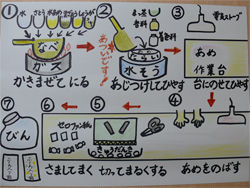 ①
水 さとう 水あめ
なべ
ガス
かきまぜてにる
あついです!!
②
香料
着色料
水そう
あじつけしてひやす
③
電気ストーブ
あめ
作業台
台にのせてひやす
④
あめをのばす
⑤
きゅうだんき
切ってまるくする
⑥
セロファン紙
さましてまく
⑦
びん